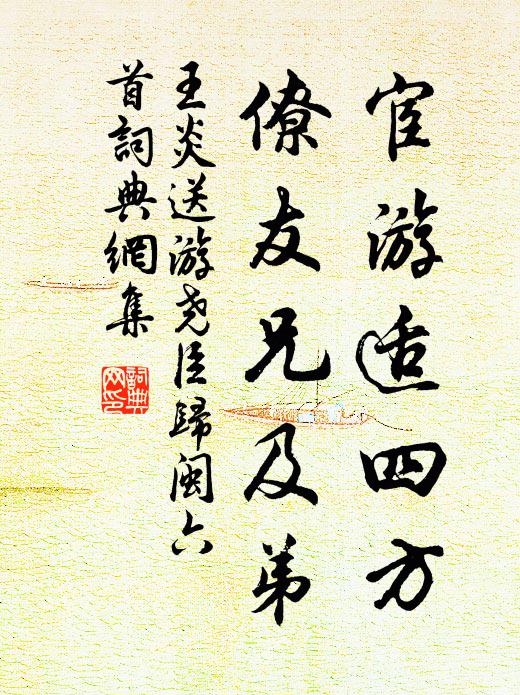 宦游适四方
僚友兄及弟
王炎送游尧臣歸闽六
首詞典網集
詞典
网印